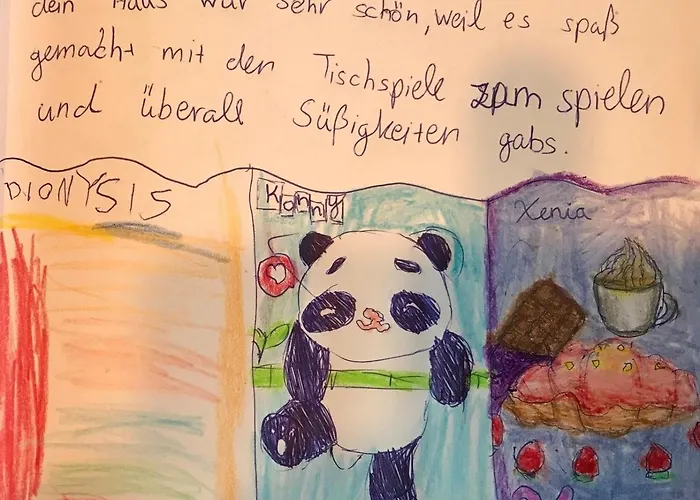 dein Haus war sehr schön, weil es spaß
gemacht mit den Tischspiele zum spielen
und überall Süßigkeiten gabs.
DIONYSIS
Konny
Xenia